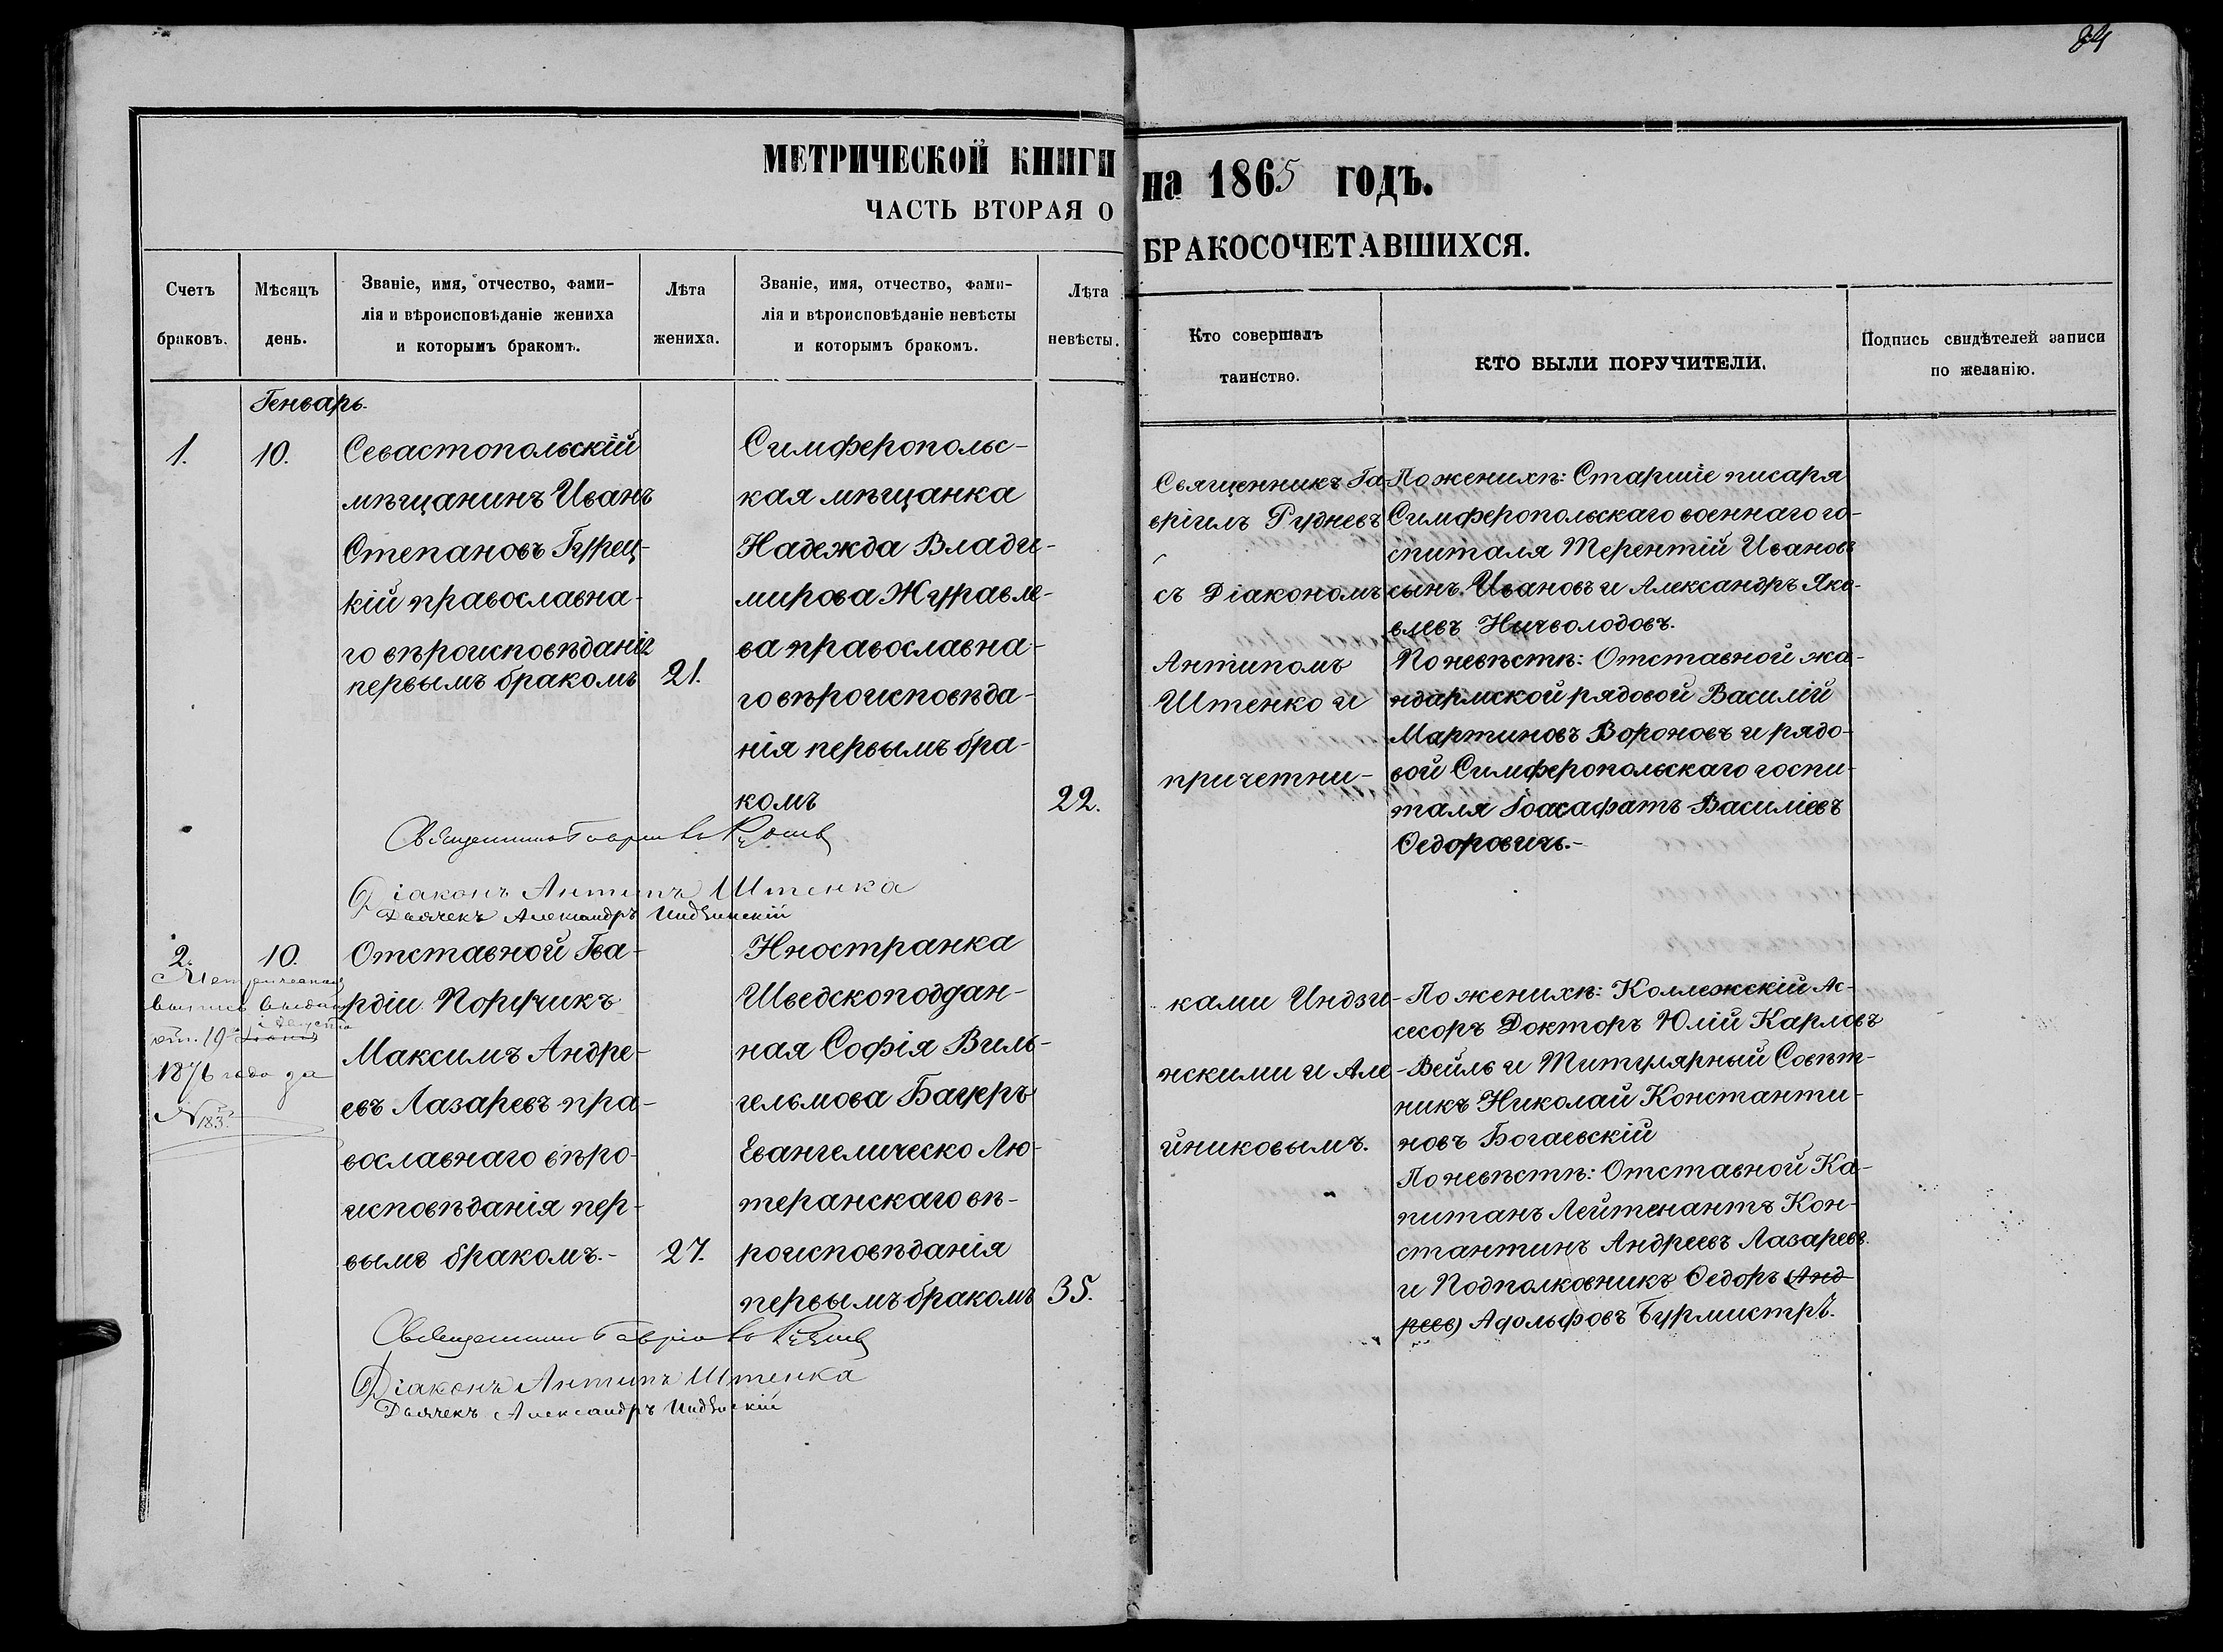 84
МЕТРИЧЕСКОЙ КНИГИ на 1865 ГОДЪ.
ЧАСТЬ ВТОРАЯ О БРАКОСОЧЕТАВШИХСЯ.
Счетъ браковъ.
Мѣсяцъ день.
Званіе, имя, отчество, фами-
лія и вѣроисповѣданіе жениха
и которымъ бракомъ.
Лѣта жениха.
Званіе, имя, отчество, фами-
лія и вѣроисповѣданіе невѣсты
и которымъ бракомъ.
Лѣта невѣсты.
Кто совершалъ
таинство.
КТО БЫЛИ ПОРУЧИТЕЛИ.
Подпись свидѣтелей записи
по желанію.
Генварь.
1.
10.
Севастопольскій
мѣщанинъ Иванъ
Степановъ Курец-
кій православна-
го вѣроисповѣданія
первымъ бракомъ
21.
Симферопольс-
кая мѣщанка
Надежда Влади-
мирова Журавле-
ва православна-
го вѣроисповѣда-
нія первымъ бра-
комъ
22.
Священникъ Га-
вріилъ Рудневъ
съ Діакономъ
Антипомъ
Штенко и
причетни-
По женихѣ: Старшіе писаря
Симферопольскаго военнаго го-
спиталя Терентій Ивановъ
сынъ Ивановъ и Александръ Яко-
влевъ Ничволодовъ.
По невѣстѣ: Отставной жа-
ндармской рядовой Василій
Мартиновъ Вороновъ и рядо-
вой Симферопольскаго госпи-
таля Іоасафатъ Василіевъ
Ѳедоровичь.-
Священникъ Гавріилъ Рудневъ
Діаконъ Антипъ Штенка
Дьячекъ Александръ Индзинскій
2.
10.
Метрическая
выпись выдана
19 Августа
1876 года за
№ 183.
Отставной Гва-
рдіи Поручикъ
Максимъ Андре-
евъ Лазаревъ пра-
вославнаго вѣро-
исповѣданія пер-
вымъ бракомъ.-
27.
Иностранка
Шведскоподдан-
ная Софія Виль-
гельмова Бауеръ
Евангелическо Лю-
теранскаго вѣ-
роисповѣданія
первымъ бракомъ
35.
ками Индзи-
нскими и Але-
йниковымъ.
По женихѣ: Коллежскій Ас-
сесоръ Докторъ Юлій Карловъ
Вейль и Титулярный Совѣт-
никъ Николай Константи-
новъ Богаевскій
По невѣстѣ: Отставной Ка-
питанъ Лейтенантъ Кон-
стантинъ Андреевъ Лазаревъ.
и Подполковникъ Ѳедоръ (Анд
реев) Адольфовъ Бурмистръ.
Священникъ Гавріилъ Рудневъ
Діаконъ Антипъ Штенка
Дьячекъ Александръ Индзинскій